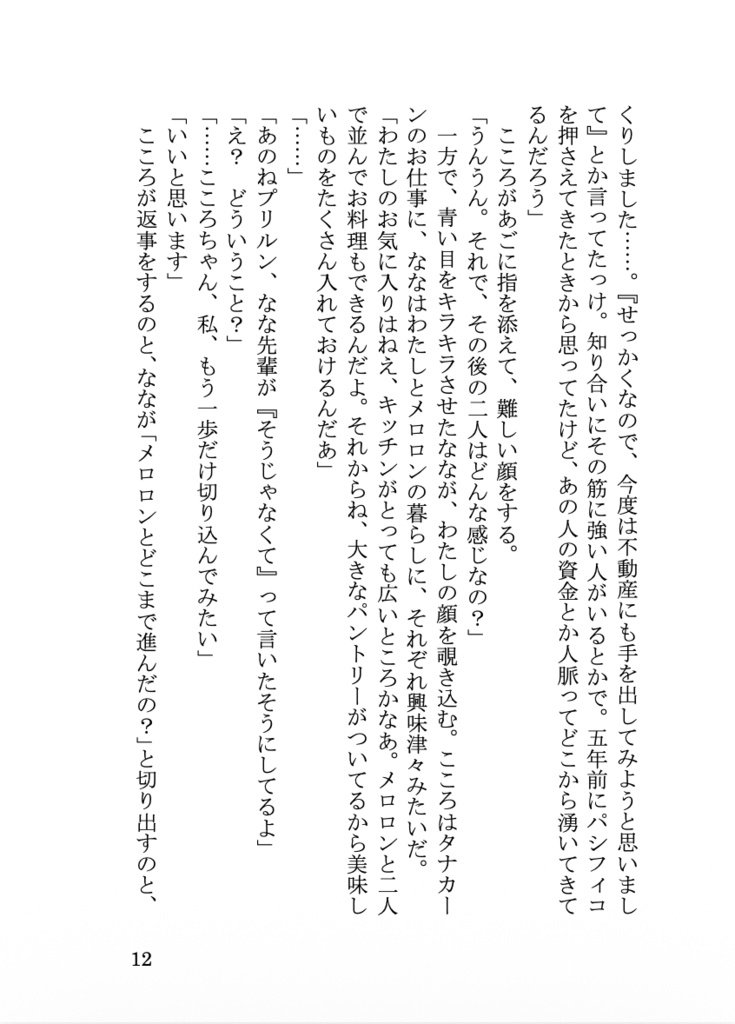 くりしました……。『せっかくなので、今度は不動産にも手を出してみようと思いまし
て』とか言ってたっけ。知り合いにその筋に強い人がいるとかで。五年前にパシフィコ
を押さえてきたときから思ってたけど、あの人の資金とか人脈ってどこから湧いてきて
るんだろう」
　こころがあごに指を添えて、難しい顔をする。
「うんうん。それで、その後の二人はどんな感じなの？」
　一方で、青い目をキラキラさせたななが、わたしの顔を覗き込む。こころはタナカー
ンのお仕事に、ななはわたしとメロロンの暮らしに、それぞれ興味津々みたいだ。
「わたしのお気に入りはねえ、キッチンがとっても広いところかなあ。メロロンと二人
で並んでお料理もできるんだよ。それからね、大きなパントリーがついてるから美味し
いものをたくさん入れておけるんだあ」
「……」
「あのねプリルン、なな先輩が『そうじゃなくて』って言いたそうにしてるよ」
「え？　どういうこと？」
「……こころちゃん、私、もう一歩だけ切り込んでみたい」
「いいと思います」
　こころが返事をするのと、ななが「メロロンとどこまで進んだの？」と切り出すのと、
12